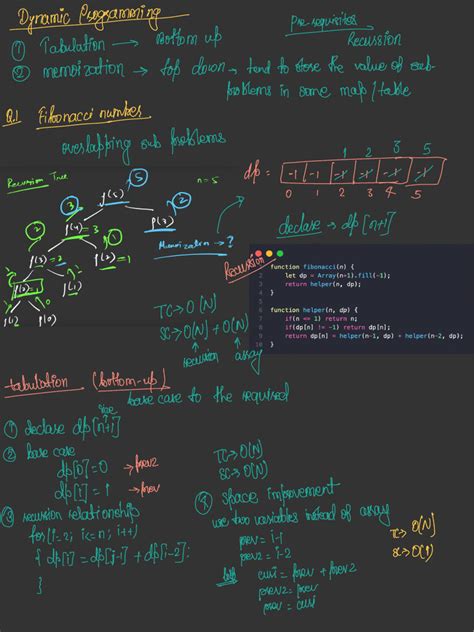 Dynamic Programming
Pre-requisites
Recussion
① Tabulation → Bottom up
② memoization → top down → tend to store the value of sub-
problems in some map/table
Q.1 Fibonacci number
overlapping sub problems
Recursion Tree
n=5
f(5)
5
3
2
f(4) = 3
f(3)
2
1
f(3) = 2
f(2) = 1
f(1)
f(1)
f(0)
memoization → ?
1 2 3 5
dp = -1 -1 -1 -1 -1 -1
0 1 2 3 4 5
declare → dp[n+1]
Recursion
1 function fibonacci(n) {
2 let dp = Array(n+1).fill(-1);
3 return helper(n, dp);
4 }
5
6 function helper(n, dp) {
7 if(n <= 1) return n;
8 if(dp[n] != -1) return dp[n];
9 return dp[n] = helper(n-1, dp) + helper(n-2, dp);
10 }
TC → O(N)
SC → O(N) + O(N)
recursion array
tabulation (bottom-up)
base case to the required
① declare dp[n+1]
② base case
dp[0] = 0 → prev2
dp[1] = 1 → prev
③ recursion relationships
for(i=2; i<=n; i++)
{ dp[i] = dp[i-1] + dp[i-2];
}
TC → O(N)
SC → O(N)
④ space improvement
use two variables instead of array
prev = i-1
prev2 = i-2
curi = prev + prev2
prev2 = prev
prev = curi
TC → O(N)
SC → O(1)